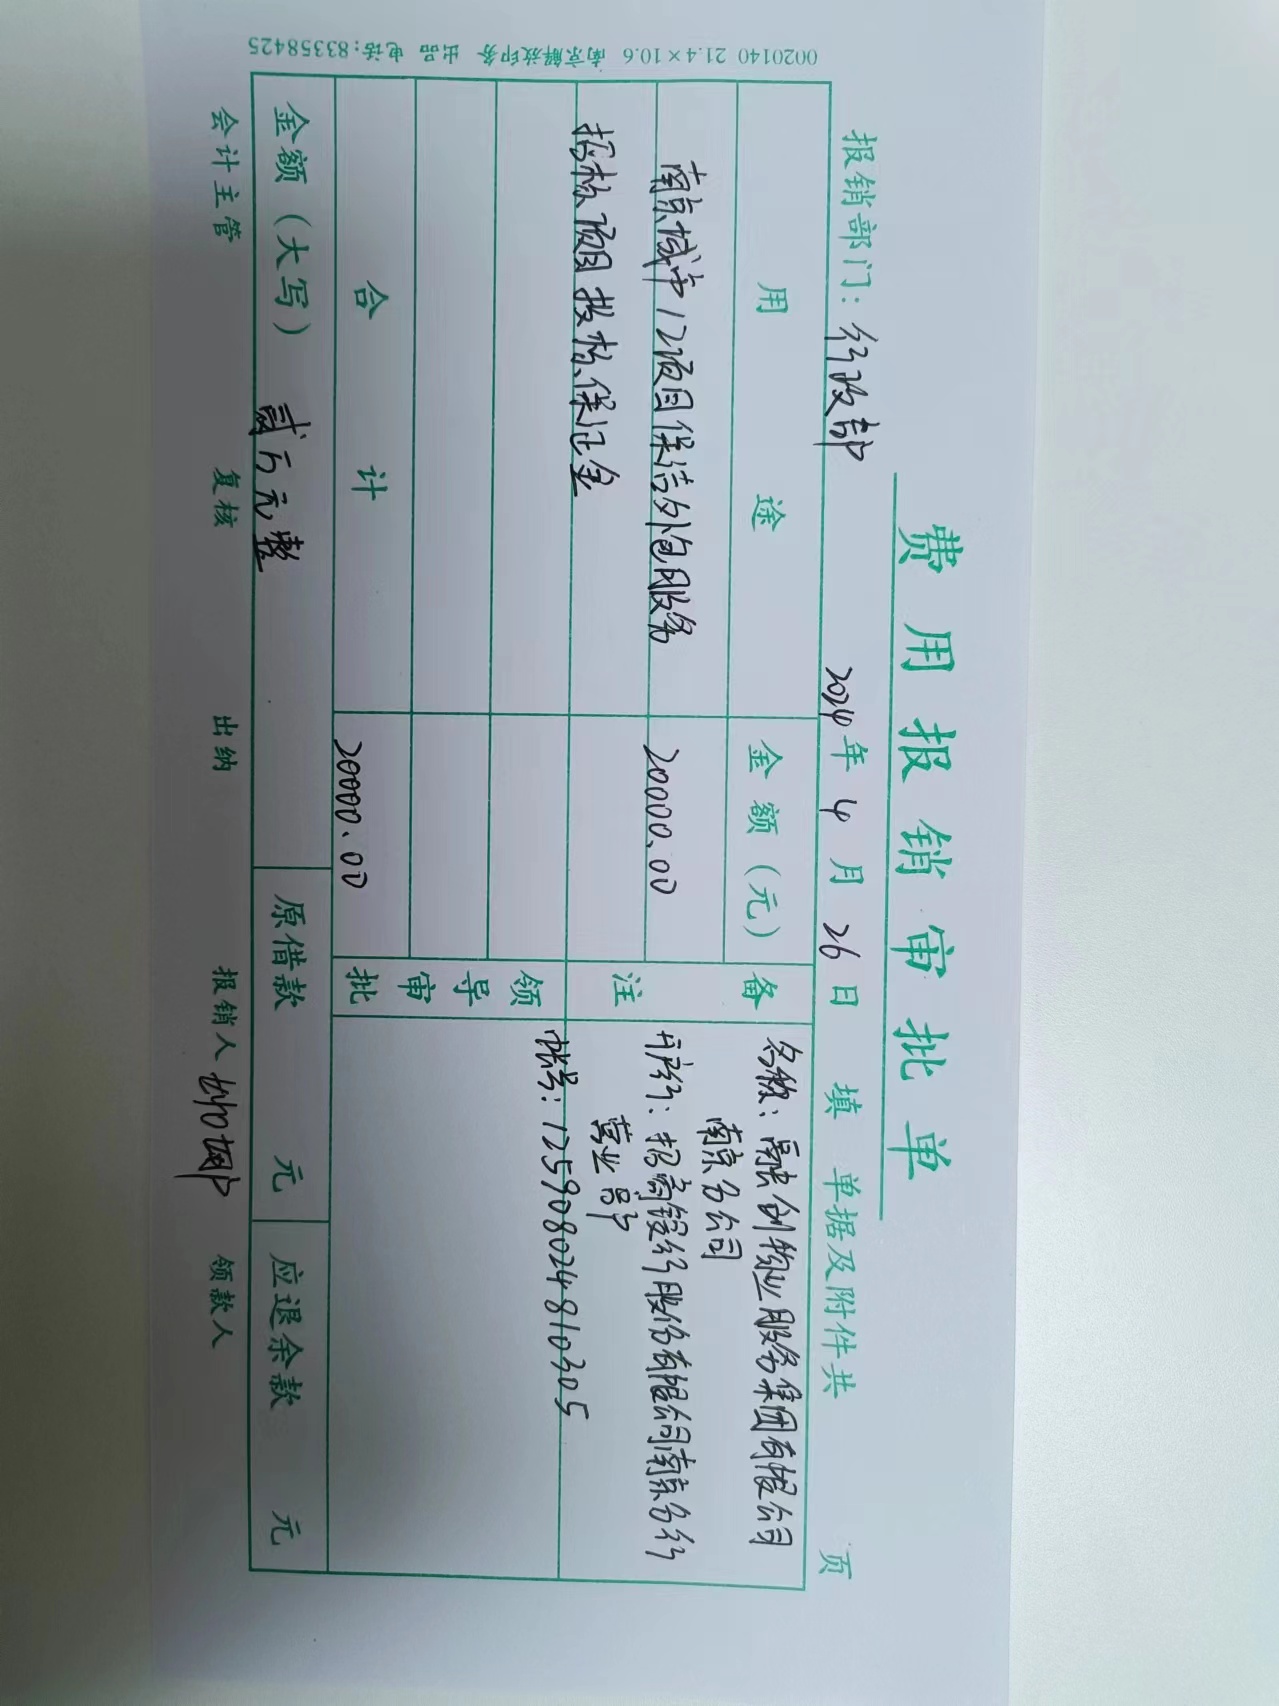 费用报销审批单
报销部门：行政部 2024年4月26日 填 单据及附件共 页
用途 金额（元） 备注
名称：融创物业服务集团有限公司
南京分公司
南京城中12项目保洁外包服务 20000.00
开户行：招商银行股份有限公司南京分行
营业部
招标项目投标保证金
帐号：125908024810305
领导审批
合计 20000.00
金额（大写） 贰万元整 原借款 元 应退余款 元
会计主管 复核 出纳 报销人 领款人
0020140 21.4×10.6 南京解放印务 出品 电话:83358425